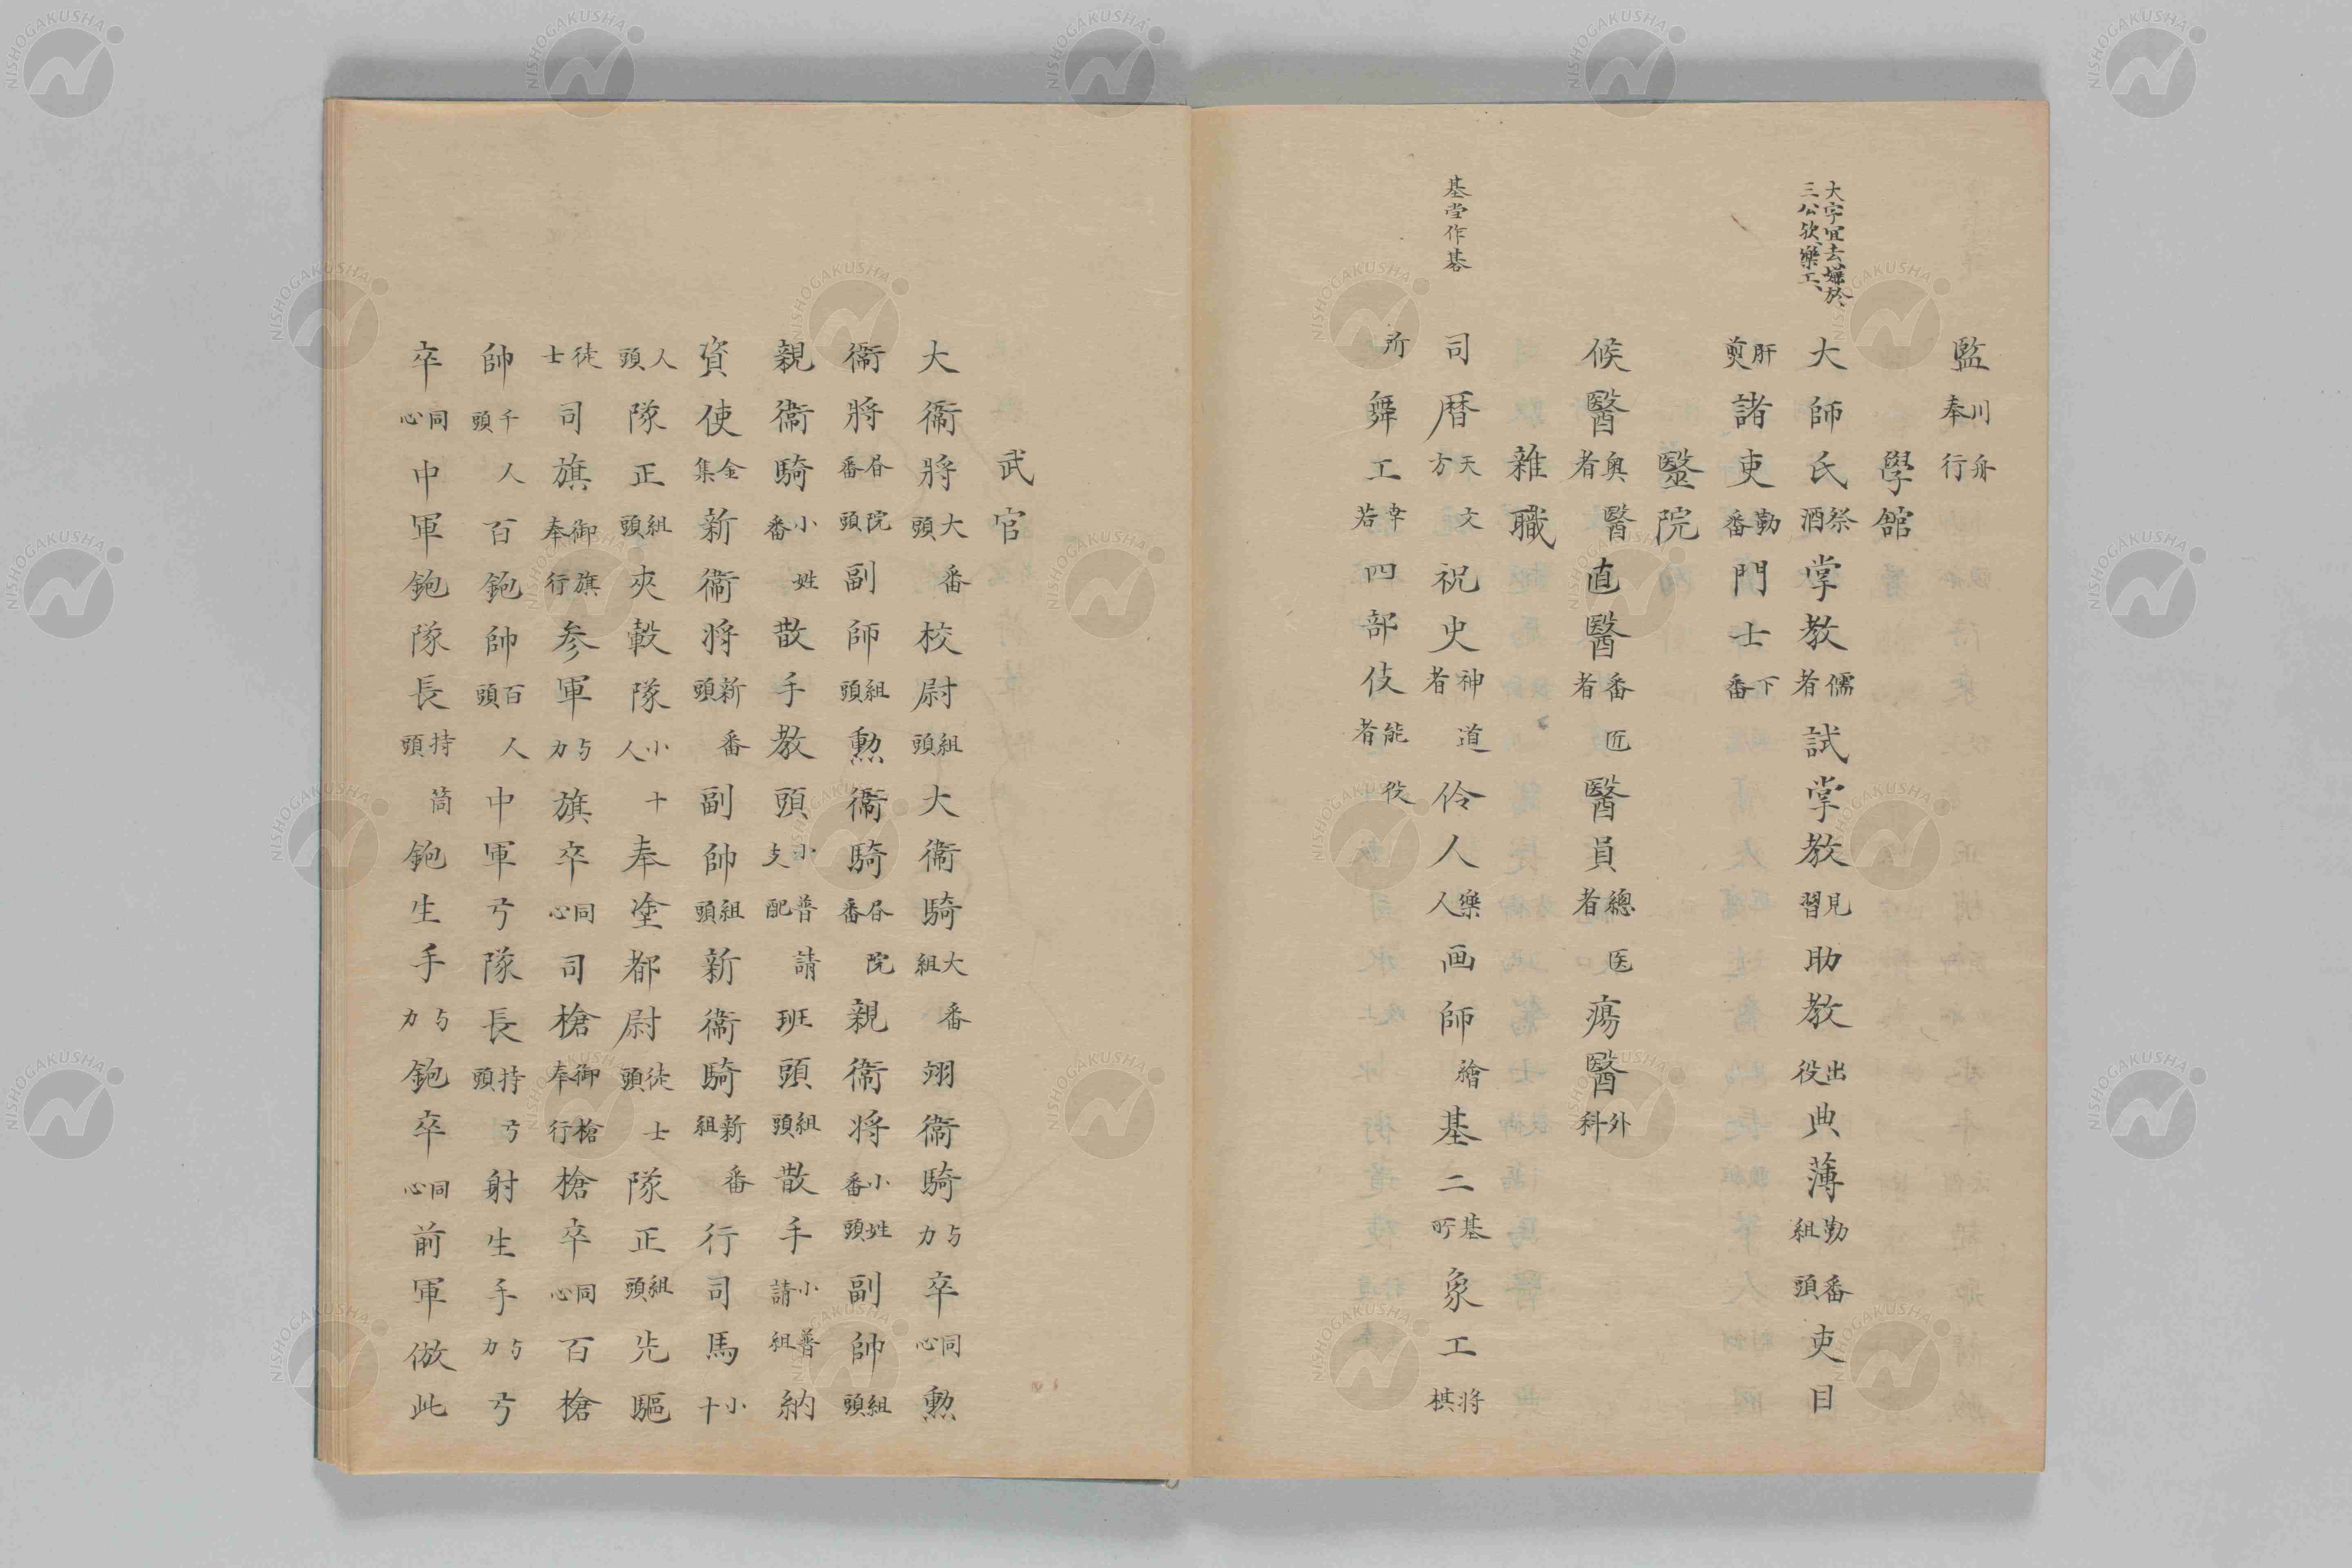 大字宜去嫌於
三公欤樂工
監川舟奉行
學館
大師氏祭酒掌教儒者試掌教見習助教出役典薄勤番組頭吏目
肝煎諸吏勤番門士下番
毉院
候醫奥醫者直醫番匠者醫員總医者瘍醫外科
雜職
基當作碁
司暦天文方祝史神道者伶人樂人画師繪基二基所象工将棋
所舞工幸若四部伎能役者
武官
大衞將大番頭校尉組頭大衞騎大番組翊衞騎与力卒同心勲
衞將昏院番頭副師組頭勲衞騎昏院番親衞将小姓番頭副帥組頭
親衞騎小姓番散手教頭小普請支配班頭組頭散手小普請組納
資使金集新衞将新番頭副帥組頭新衞騎新番組行司馬小十
人頭隊正組頭夾轂隊小十人奉塗都尉徒士頭隊正組頭先驅
徒士司旗御旗奉行参軍与力旗卒同心司槍御槍奉行槍卒同心百槍
帥千人頭百鉋帥百人頭中軍弓隊長持弓頭射生手与力弓
卒同心中軍鉋隊長持筒頭鉋生手与力鉋卒同心前軍倣此